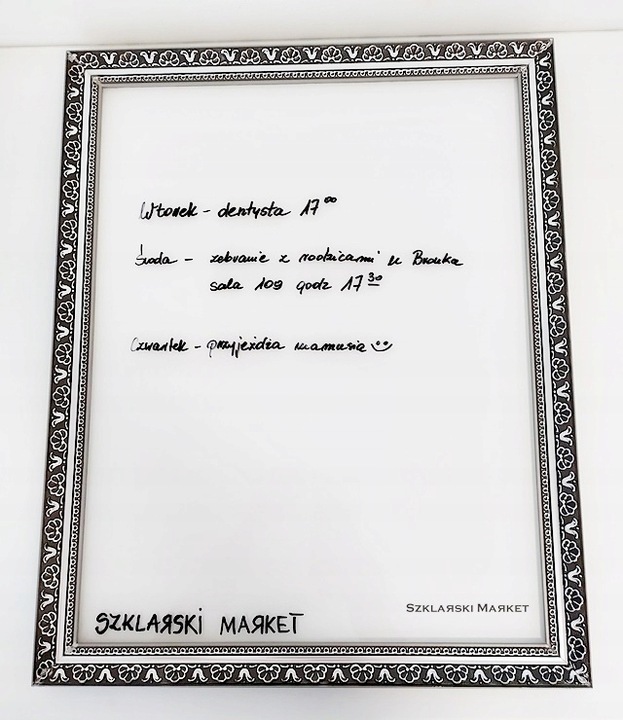 Wtorek - dentysta 17⁰⁰
Środa - zebranie z rodzicami u Bronka
sala 109 godz 17³⁰
Czwartek - przyjeżdża mamusia :)
SZKLAЯSKI MAЯKET
SZKLAЯSKI MAЯKET